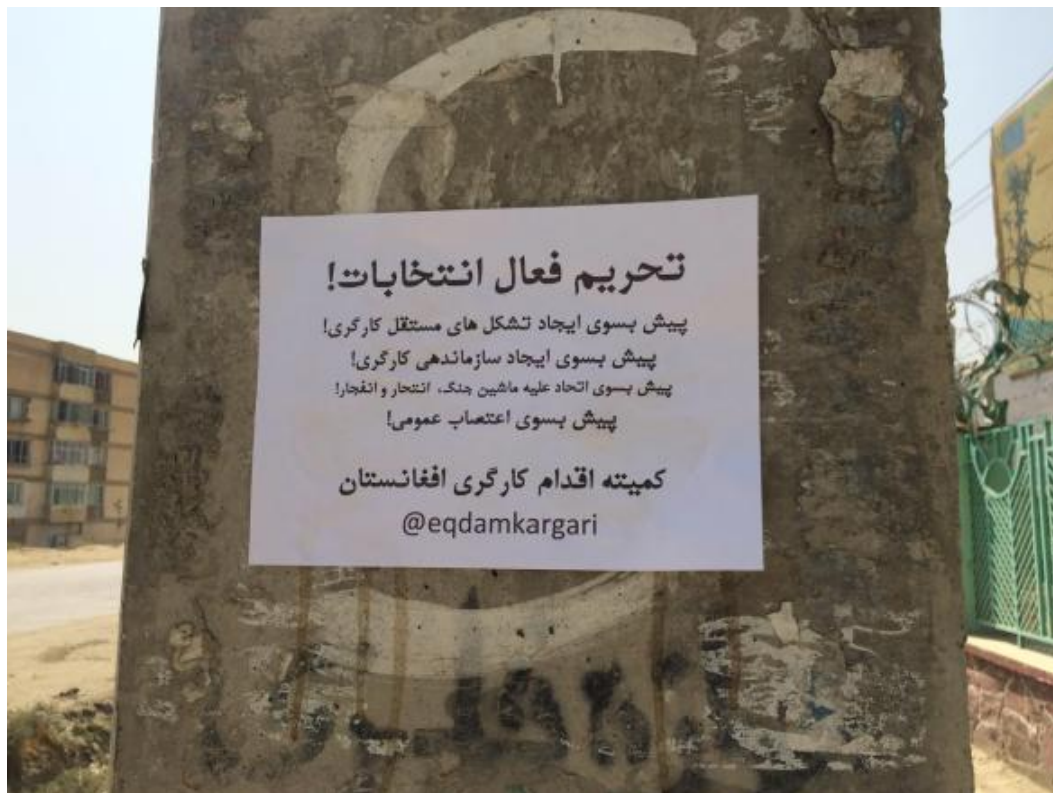 تحریم فعال انتخابات!
پیش بسوی ایجاد تشکل های مستقل کارگری!
پیش بسوی ایجاد سازماندهی کارگری!
پیش بسوی اتحاد علیه ماشین جنگ، انتحار و انفجار!
پیش بسوی اعتصاب عمومی!
کمیته اقدام کارگری افغانستان
@eqdamkargari